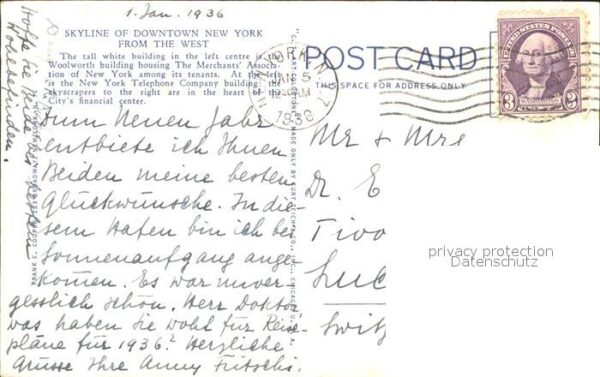 1. Jan. 1936
SKYLINE OF DOWNTOWN NEW YORK
FROM THE WEST
The tall white building in the left centre is the
Woolworth building housing The Merchants' Association
of New York among its tenants. At the left
is the New York Telephone Company building; the
skyscrapers to the right are in the heart of the
City's financial center.
Zum Neuen Jahr
entbiete ich Ihnen
Beiden meine besten
Glückwünsche. In die-
sem Hafen bin ich bei
Sonnenaufgang ange-
komen. Es war unver-
gesslich schön. Herr Doktor
was haben Sie wohl für Reise-
pläne für 1936? Herzliche
Grüsse Ihre Anny Fritschi.
Hoffe Sie Beide bei bestem
Wohlbefinden.
POST CARD
THIS SPACE FOR ADDRESS ONLY
NEW YORK, N.Y.
JAN 5
1936
UNITED STATES POSTAGE
3 WASHINGTON 3
Mr & Mrs
Dr. E
Tivo
Luc
Switz
privacy protection
Datenschutz